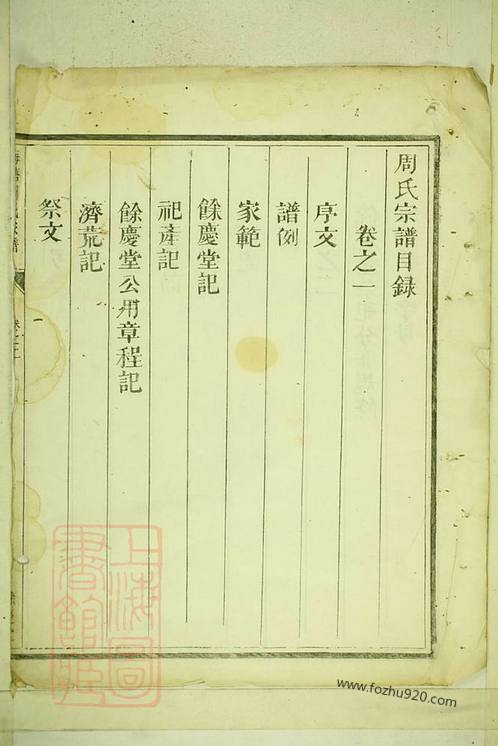 周氏宗譜目録
卷之一
序文
譜例
家範
餘慶堂記
祀產記
餘慶堂公用章程記
濟荒記
祭文
上海圖書館藏
www.fozhu920.com